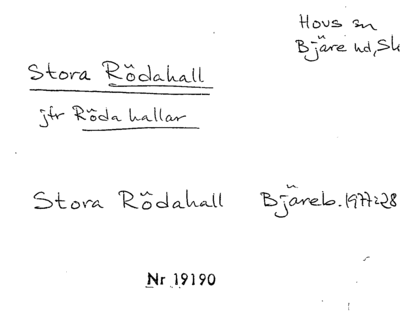 Hovs sn
Bjäre hd, Sk
Stora Rödahall
jfr Röda hallar
Stora Rödahall Bjäreb. 1977:28
Nr 19190